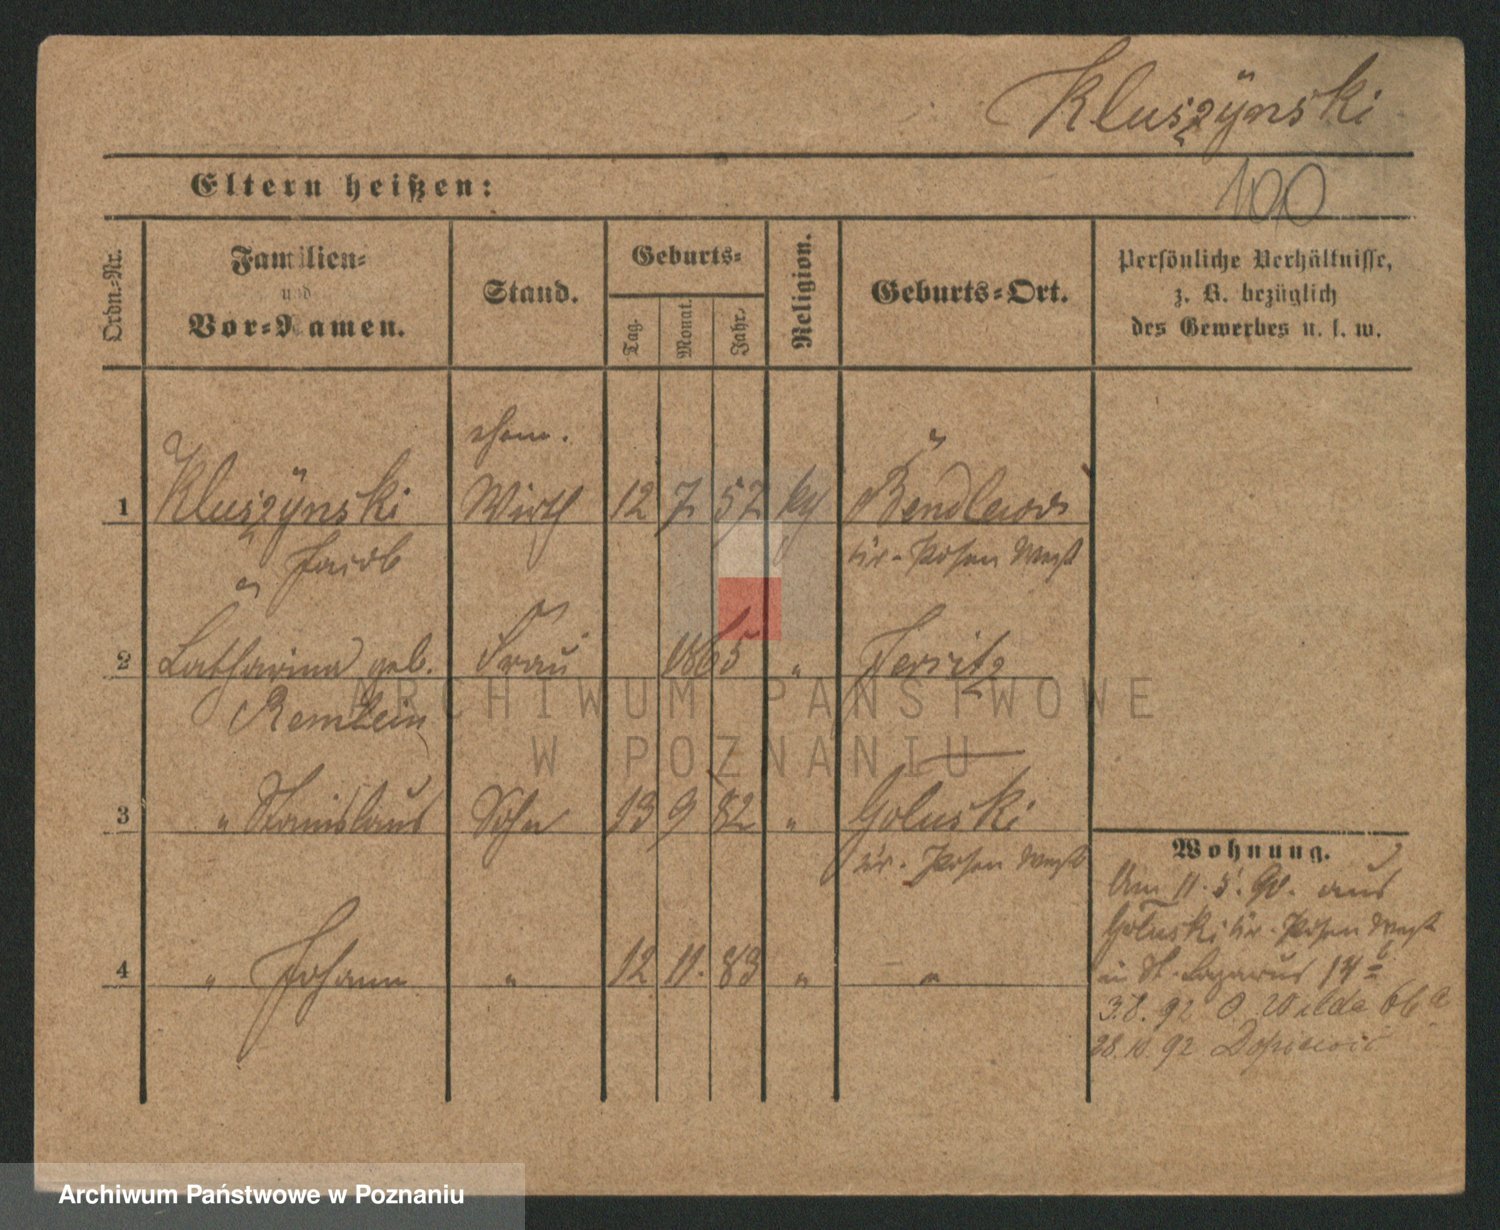 Kluszÿnski
Eltern heißen:
100
Ordn.-Nr.
Familien-
und
Vor-Namen.
Stand.
Geburts-
Tag.
Monat.
Jahr.
Religion.
Geburts-Ort.
Persönliche Verhältnisse,
z. B. bezüglich
des Gewerbes u. s. w.
ehem.
1 Kluszÿnski Wirth 12 7 57 Bendlewo
Jacob Kr. Posen West
2 Catharina geb. Frau 1865 "
3 " Stanislaus Sohn 13 9 82 " Goluski
Kr. Posen West
4 " Johann " 12 11. 83 " "
Wohnung.
Am 11. 5. 90. aus
Goluski Kr. Posen West
in St. Lazarus 14
3.8. 92 O. Wilda
28.10.92
ARCHIWUM PAŃSTWOWE
W POZNANIU
Archiwum Państwowe w Poznaniu